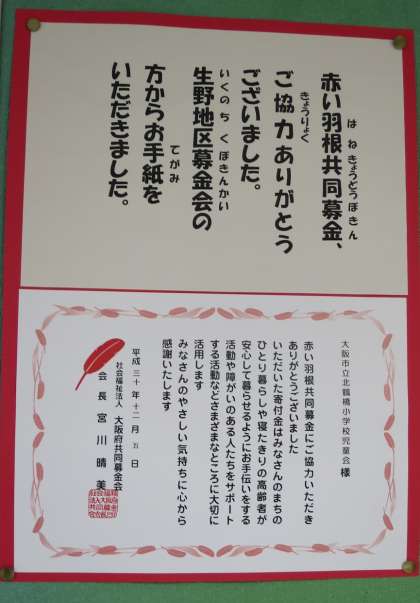 赤い羽根共同募金、
はねきょうどうぼきん
ご協力ありがとう
きょうりょく
ございました。
生野地区募金会の
いくのちくぼきんかい
方からお手紙を
てがみ
いただきました。
大阪市立北鶴橋小学校児童会様
赤い羽根共同募金にご協力いただき
ありがとうございました
いただいた寄付金はみなさんのまちの
ひとり暮らしや寝たきりの高齢者が
安心して暮らせるようにお手伝いをする
活動や障がいのある人たちをサポート
する活動などさまざまなところに大切に
活用します
みなさんのやさしい気持ちに心から
感謝いたします
平成三十年十二月五日
社会福祉法人 大阪府共同募金会
会長 宮川晴美